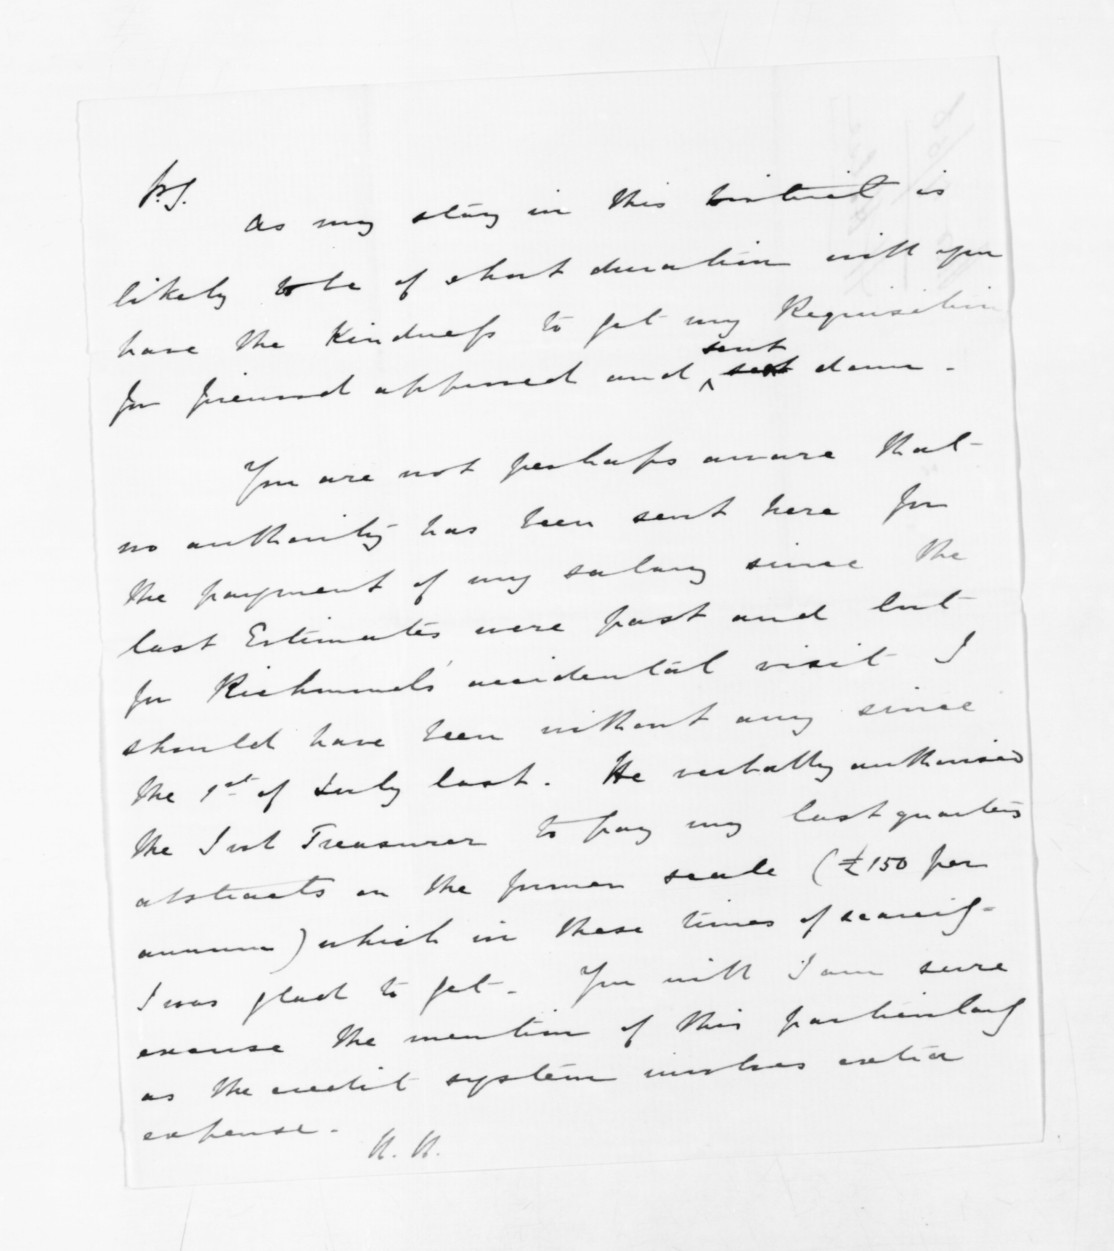 P.S.
As my stay in this District is
likely to be of short duration will you
have the Kindness to get my Requisition
for forward approved and sent down -
You are not perhaps aware that
no authority has been sent here for
the payment of my salary since the
last Estimates were past and but
for Richmond's accidental visit I
should have been without any since
the 1st of July last. He verbally authorised
the Sub Treasurer to pay my last quarters
abstracts on the former scale (£150 per
annum) which in these times of scarcity
I was glad to get - You will I am sure
excuse the mention of this particularly
as the credit system involves extra
expense -